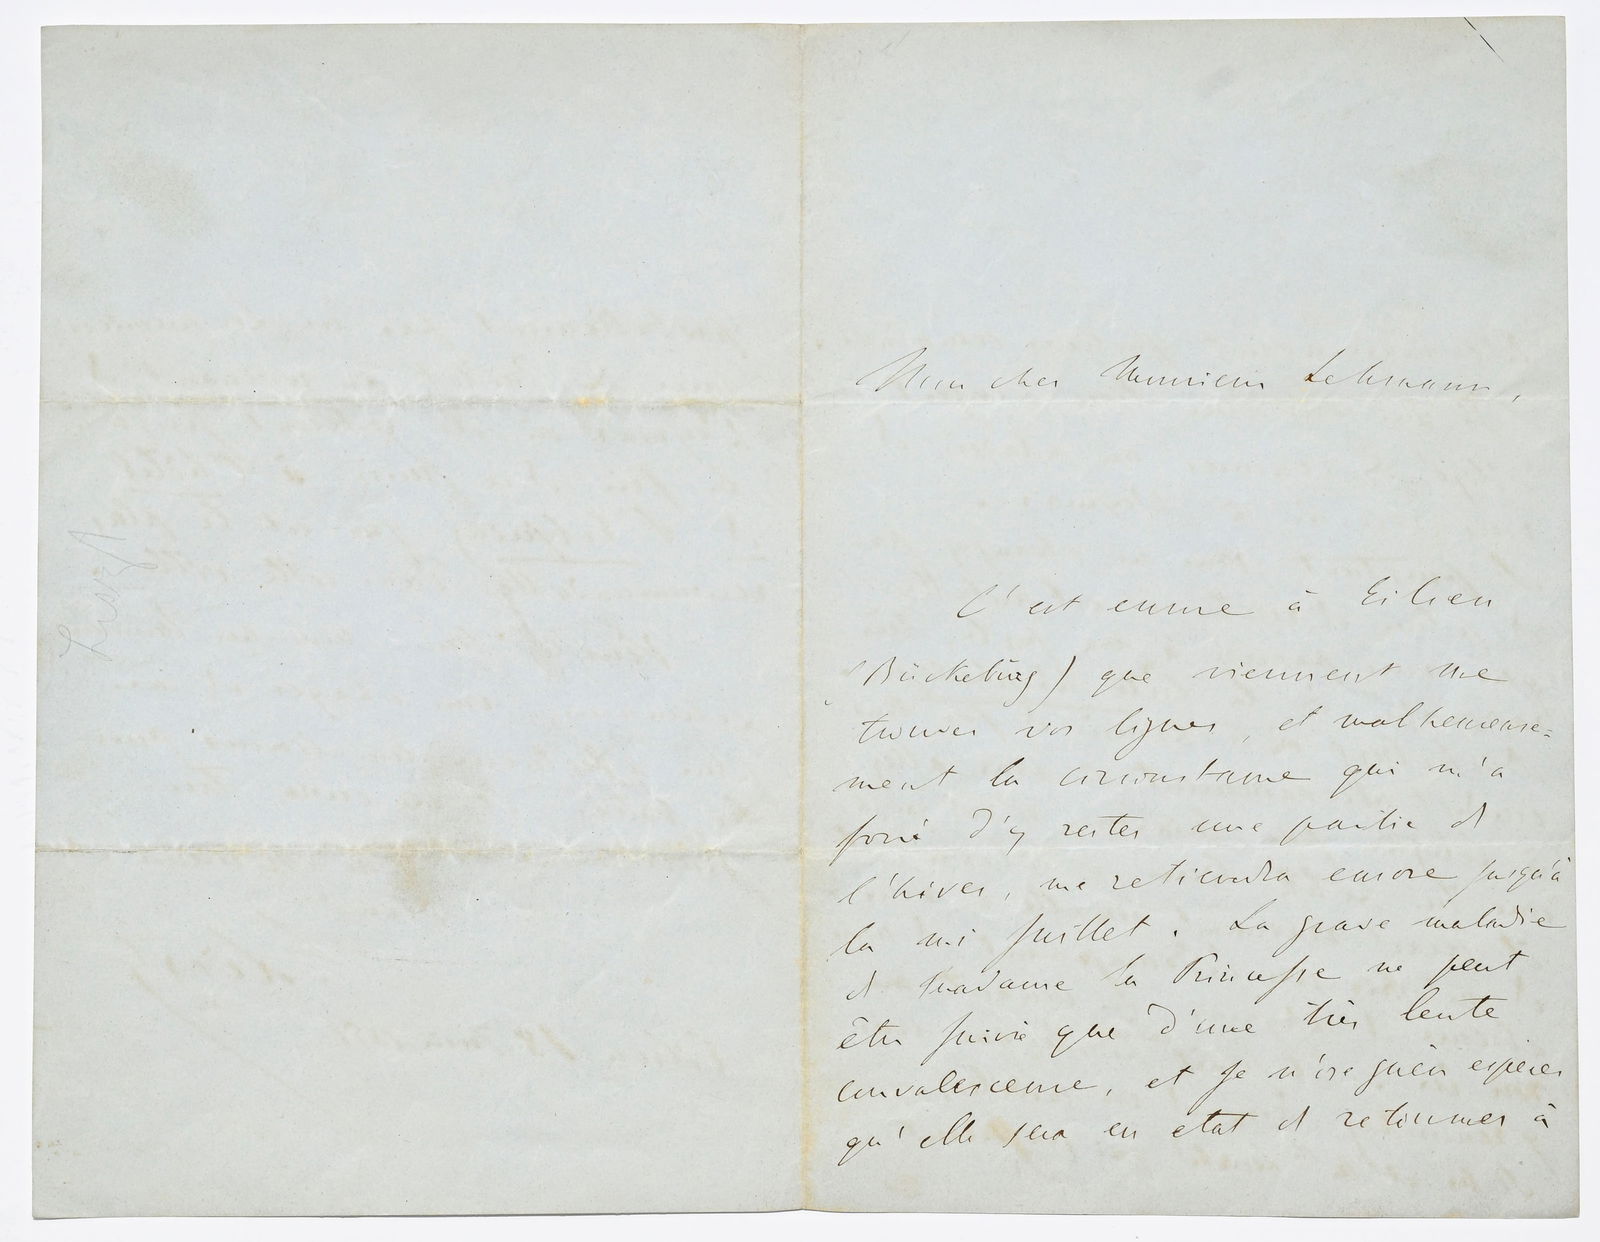 Liszt
Mon cher Monsieur Lehmann,
C'est encore à Eilsen
(Bückeburg) que viennent me
trouver vos lignes, et malheureuse-
ment la circonstance qui m'a
forcé d'y rester une partie de
l'hiver, me retiendra encore jusqu'à
la mi Juillet. La grave maladie
de Madame la Princesse ne peut
être suivie que d'une très lente
convalescence, et je n'ose guère espérer
qu'elle sera en état de retourner à